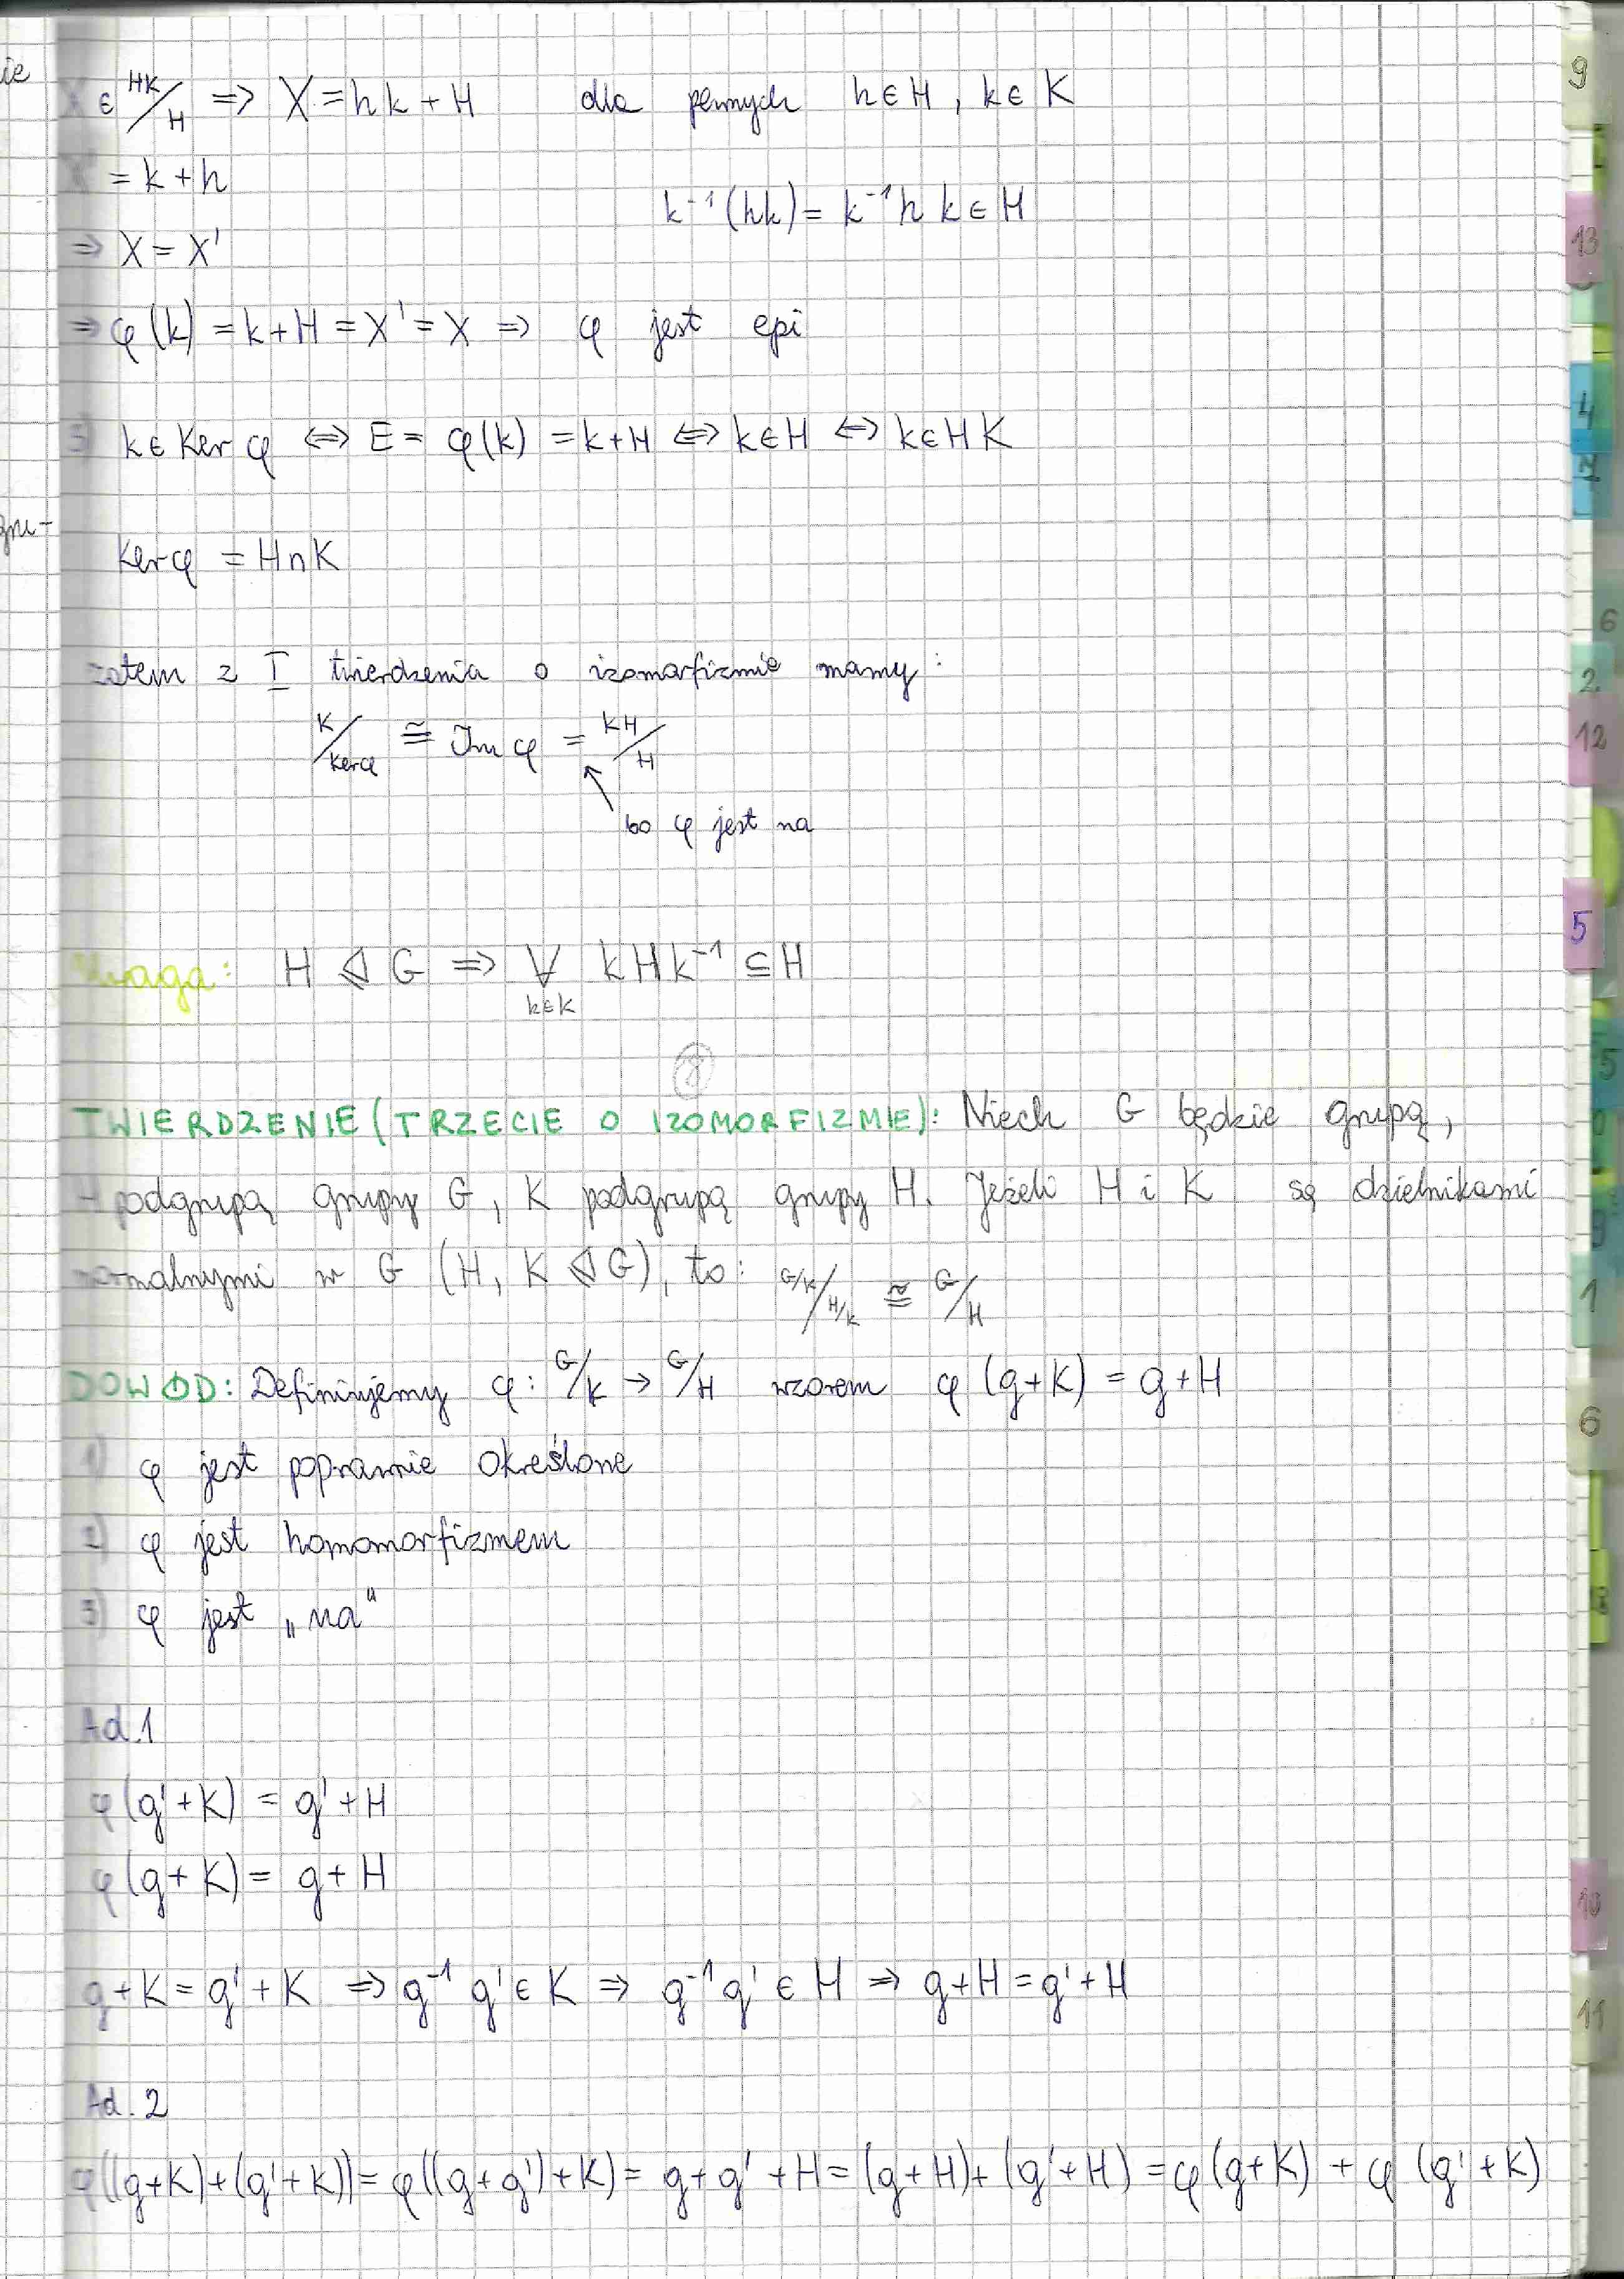 ie
X ∈ HK/H => X = hk + H dla pewnych h ∈ H, k ∈ K
X' = k + h
k⁻¹(hk) = k⁻¹h k ∈ H
=> X = X'
=> φ(k) = k + H = X' = X => φ jest epi
3) k ∈ Ker φ <=> E = φ(k) = k + H <=> k ∈ H <=> k ∈ H K
gru-
Ker φ = H ∩ K
zatem z I twierdzenia o izomorfizmie mamy:
K/Ker φ ≅ Im φ = KH/H
bo φ jest na
Uwaga: H ⊲ G => ∀ k H k⁻¹ ⊆ H
k ∈ K
8
TWIERDZENIE (TRZECIE O IZOMORFIZMIE): Niech G będzie grupą,
H podgrupą grupy G, K podgrupą grupy H. Jeżeli H i K są dzielnikami
normalnymi w G (H, K ⊲ G), to: G/K / H/K ≅ G/H
DOWÓD: Definiujemy φ: G/K → G/H wzorem φ(g+K) = g+H
1) φ jest poprawnie określone
2) φ jest homomorfizmem
3) φ jest „na"
Ad.1
φ(g'+K) = g'+H
φ(g+K) = g+H
g+K = g'+K => g⁻¹ g' ∈ K => g⁻¹g' ∈ H => g+H = g'+H
Ad. 2
φ((g+K)+(g'+K)) = φ((g+g')+K) = g+g'+H = (g+H)+(g'+H) = φ(g+K) + φ(g'+K)
9
13
4
7
6
2
12
5
5
1
6
8
10
11